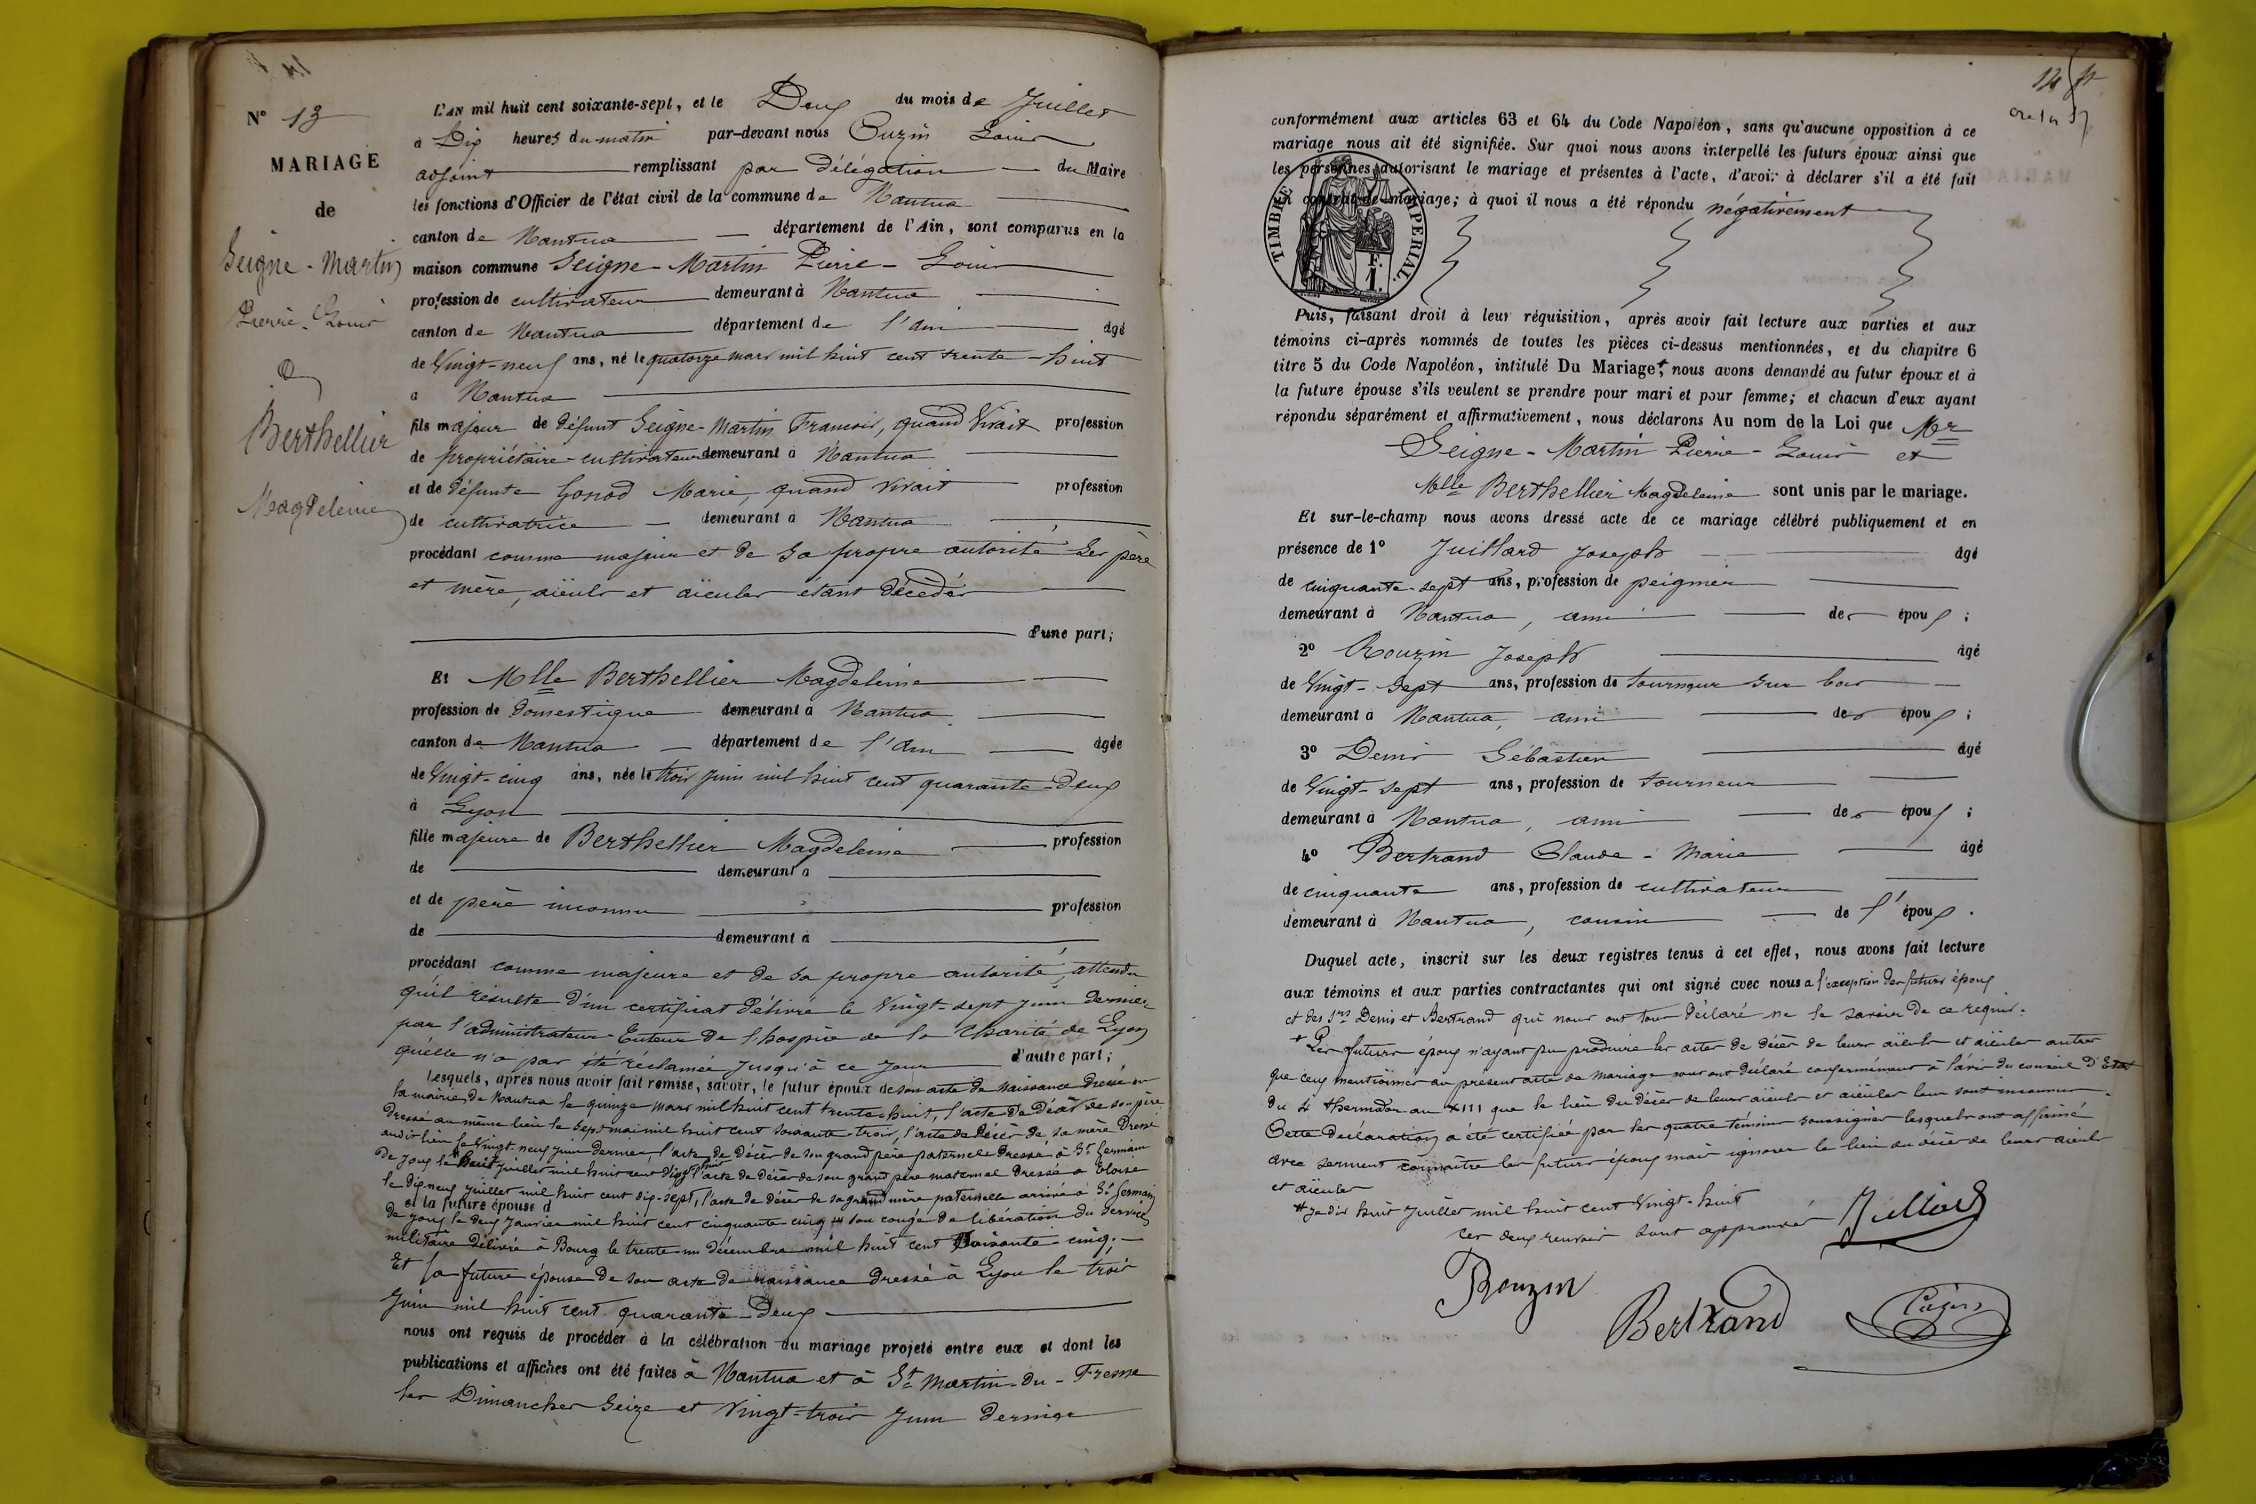 N° 13
MARIAGE
de
Seigne-Martin
Pierre-Louis
&
Berthellier
Magdeleine
L'AN mil huit cent soixante-sept, et le Deux du mois de Juillet
à Dix heures du matin par-devant nous Ouzin Louis
adjoint remplissant par délégation du Maire
les fonctions d'Officier de l'état civil de la commune de Nantua
canton de Nantua département de l'Ain, sont comparus en la
maison commune Seigne-Martin Pierre-Louis
profession de cultivateur demeurant à Nantua
canton de Nantua département de l'ain âgé
de Vingt-neuf ans, né le quatorze mars mil huit cent trente-huit
à Nantua
fils majeur de défunt Seigne-Martin François, quand Vivait profession
de propriétaire-cultivateur demeurant à Nantua
et de défunte Gonod Marie, quand vivait profession
de cultivatrice demeurant à Nantua
procédant comme majeur et de sa propre autorité ses père
et mère, aïeuls et aïeules étant décédés
d'une part;
Et Mlle Berthellier Magdeleine
profession de domestique demeurant à Nantua
canton de Nantua département de l'ain âgée
de Vingt-cinq ans, née le trois juin mil huit cent quarante-deux
à Lyon
fille majeure de Berthellier Magdeleine profession
de demeurant à
et de père inconnu profession
de demeurant à
procédant comme majeure et de sa propre autorité, attendu
qu'il résulte d'un certificat délivré le Vingt-sept juin dernier
par l'administrateur-Tuteur de l'hospice de la Charité de Lyon
qu'elle n'a pas été réclamée jusqu'à ce jour d'autre part;
lesquels, après nous avoir fait remise, savoir, le futur époux de son acte de naissance dressé en
la mairie de Nantua le quinze mars mil huit cent trente-huit, l'acte de décès de son père
dressé au même lieu le sept mai mil huit cent soixante-trois, l'acte de décès de sa mère dressé
audit lieu le Vingt-neuf juin dernier, l'acte de décès de son grand père paternel dressé à St Germain
de Joux le huit juillet mil huit cent dix-huit, l'acte de décès de son grand père maternel dressé à Eloise
le dix neuf juillet mil huit cent dix-sept, l'acte de décès de sa grand mère paternelle arrivé à St Germain
et la future épouse d
de Joux le deux Janvier mil huit cent cinquante cinq et son congé de libération du Service
militaire délivré à Bourg le trente-un décembre mil huit cent soixante-cinq.
Et la future épouse de son acte de naissance dressé à Lyon le trois
Juin mil huit cent quarante-deux
nous ont requis de procéder à la célébration du mariage projeté entre eux et dont les
publications et affiches ont été faites à Nantua et à St Martin-du-Fresne
les Dimanches Seize et Vingt-trois Juin dernier
14
conformément aux articles 63 et 64 du Code Napoléon, sans qu'aucune opposition à ce
mariage nous ait été signifiée. Sur quoi nous avons interpellé les futurs époux ainsi que
les personnes autorisant le mariage et présentes à l'acte, d'avoir à déclarer s'il a été fait
un contrat de mariage; à quoi il nous a été répondu négativement
TIMBRE IMPERIAL.
F.
1.
Puis, faisant droit à leur réquisition, après avoir fait lecture aux parties et aux
témoins ci-après nommés de toutes les pièces ci-dessus mentionnées, et du chapitre 6
titre 5 du Code Napoléon, intitulé Du Mariage, nous avons demandé au futur époux et à
la future épouse s'ils veulent se prendre pour mari et pour femme; et chacun d'eux ayant
répondu séparément et affirmativement, nous déclarons Au nom de la Loi que Mr
Seigne-Martin Pierre-Louis et
Mlle Berthellier Magdeleine sont unis par le mariage.
Et sur-le-champ nous avons dressé acte de ce mariage célébré publiquement et en
présence de 1° Juillard Joseph âgé
de cinquante-sept ans, profession de peignier
demeurant à Nantua, ami des époux;
2° Rouzin Joseph âgé
de Vingt-Sept ans, profession de tourneur sur bois
demeurant à Nantua, ami des époux;
3° Denis Sébastien âgé
de Vingt-sept ans, profession de tourneur
demeurant à Nantua, ami des époux;
4° Bertrand Claude-Marie âgé
de cinquante ans, profession de cultivateur
demeurant à Nantua, cousin de l'époux.
Duquel acte, inscrit sur les deux registres tenus à cet effet, nous avons fait lecture
aux témoins et aux parties contractantes qui ont signé avec nous a l'exception des futurs époux
et des Srs Denis et Bertrand qui nous ont tous déclaré ne le savoir de ce requis.
+ Les futurs époux n'ayant pu produire les actes de décès de leurs aïeuls et aïeules autres
que ceux mentionnés au présent acte de mariage nous ont déclaré conformément à l'avis du conseil d'Etat
du 4 thermidor an XIII que le lieu du décès de leurs aïeuls et aïeules leur sont inconnus.
Cette déclaration a été certifiée par les quatre témoins soussignés lesquels ont affirmé
avec serment connaître les futurs époux mais ignorer le lieu du décès de leurs aïeuls
et aïeules
# Je dis huit Juillet mil huit cent Vingt-huit
ces deux renvois sont approuvés Juillard
Rouzin
Bertrand